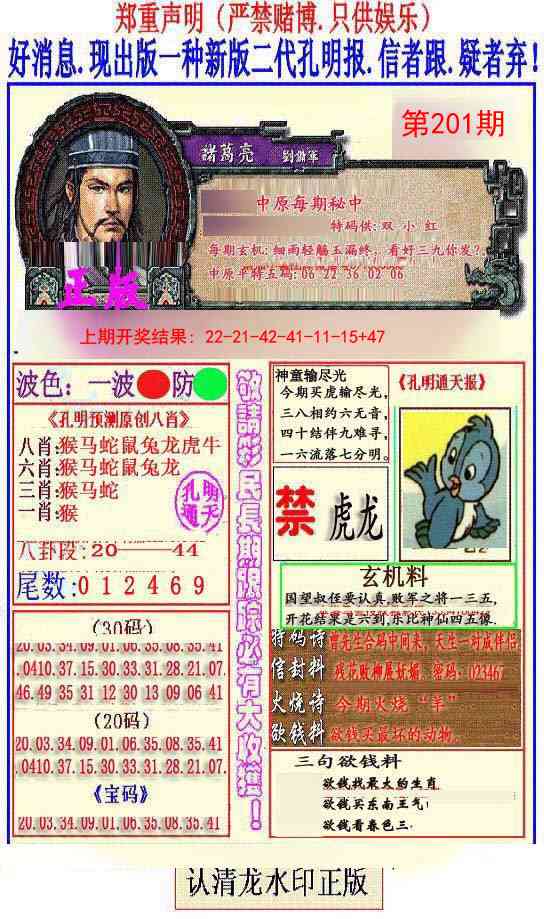 郑重声明（严禁赌博.只供娱乐）
好消息.现出版一种新版二代孔明报.信者跟.疑者弃!
第201期
諸葛亮 劉備軍
中原每期秘中
特码供: 双 小 红
每期玄机: 细雨轻觞玉漏终, 看好三九你发?
中原平特五码: 06 22 36 02 06
正版
上期开奖结果: 22-21-42-41-11-15+47
波色: 一波 防
《孔明预测原创八肖》
八肖:猴马蛇鼠兔龙虎牛
六肖:猴马蛇鼠兔龙
三肖:猴马蛇
一肖:猴
孔明
通天
八卦段:20——44
尾数:0 1 2 4 6 9
(30码)
20.03.34.09.01.06.35.08.35.41
.0410.37.15.30.33.31.28.21.07.
46.49.35.31.12.30.13.09.06.41
(20码)
20.03.34.09.01.06.35.08.35.41
.0410.37.15.30.33.31.28.21.07.
《宝码》
20.03.34.09.01.06.35.08.35.41
敬請彩民長期跟踪必有大收獲!
神童输尽光
今期买虎输尽光,
三八相约六无音,
四十结伴九难寻,
一六流落七分明。
《孔明通天报》
禁 虎龙
玄机料
国望叔侄要认真,败军之将一三五,
开花结果是六到,乐比神仙四五傻.
特码诗 曾先生合码中间来, 天生一对成伴侣
信封料 残花败柳展妩媚. 密码: 023467
火烧诗 今期火烧“羊”
欲钱料 欲钱买最坏的动物.
三句欲钱料
欲钱找最大的生肖
欲钱买东南王气!
欲钱看春色三.
认清龙水印正版